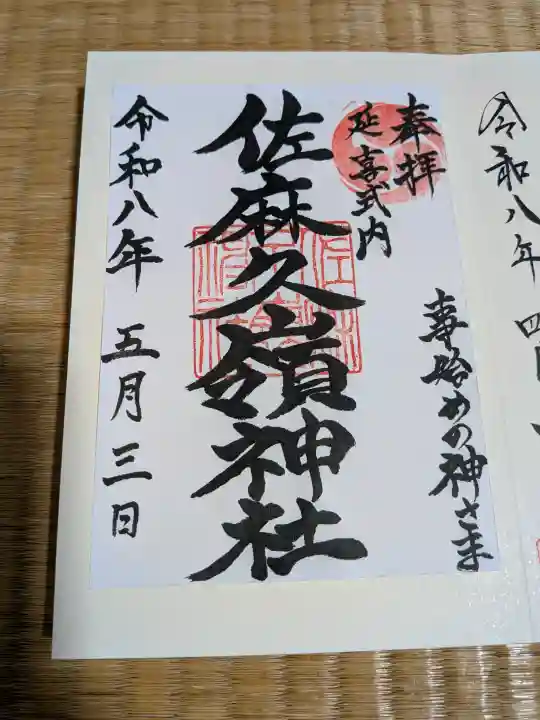 令和八年四月
奉拝
延喜式内
事始めの神さま
佐麻久嶺神社
令和八年 五月三日